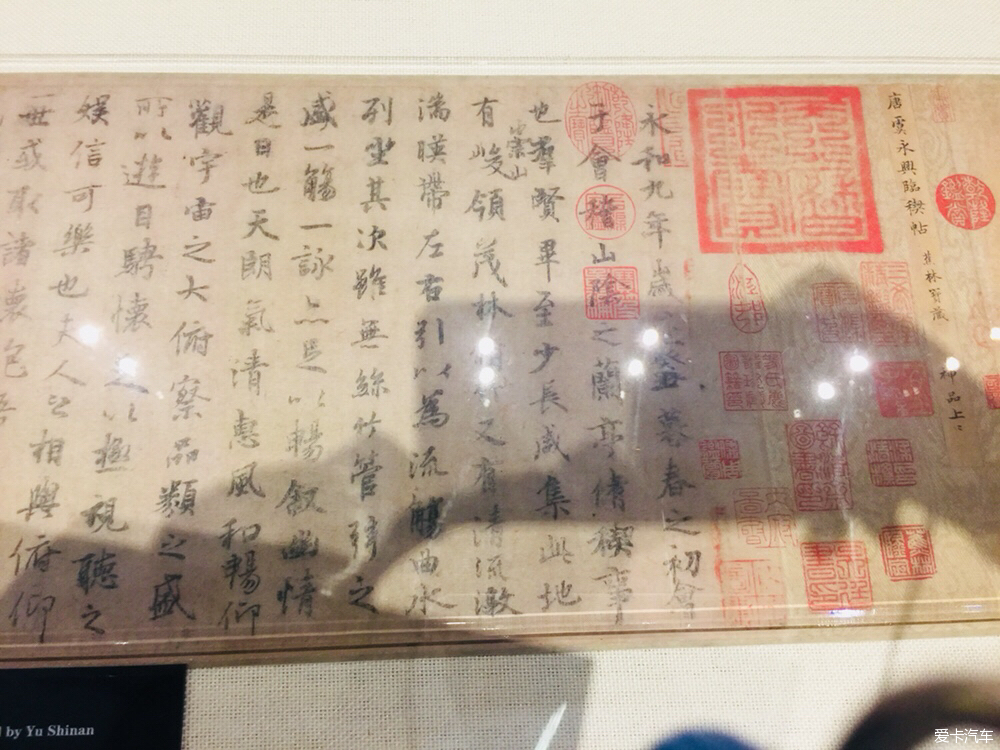 唐虞永興臨禊帖
永和九年歲暮春之初會
于會稽山陰之蘭亭脩禊事
也羣賢畢至少長咸集此地
有崇山峻領茂林又有清流激
湍暎帶左右引以為流觴曲水
列坐其次雖無絲竹管弦之
盛一觴一詠亦足以暢敘幽情
是日也天朗氣清惠風和暢仰
觀宇宙之大俯察品類之盛
所以遊目騁懷足以極視聽之
娛信可樂也夫人之相與俯仰
一世或取諸懷抱
by Yu Shinan
爱卡汽车